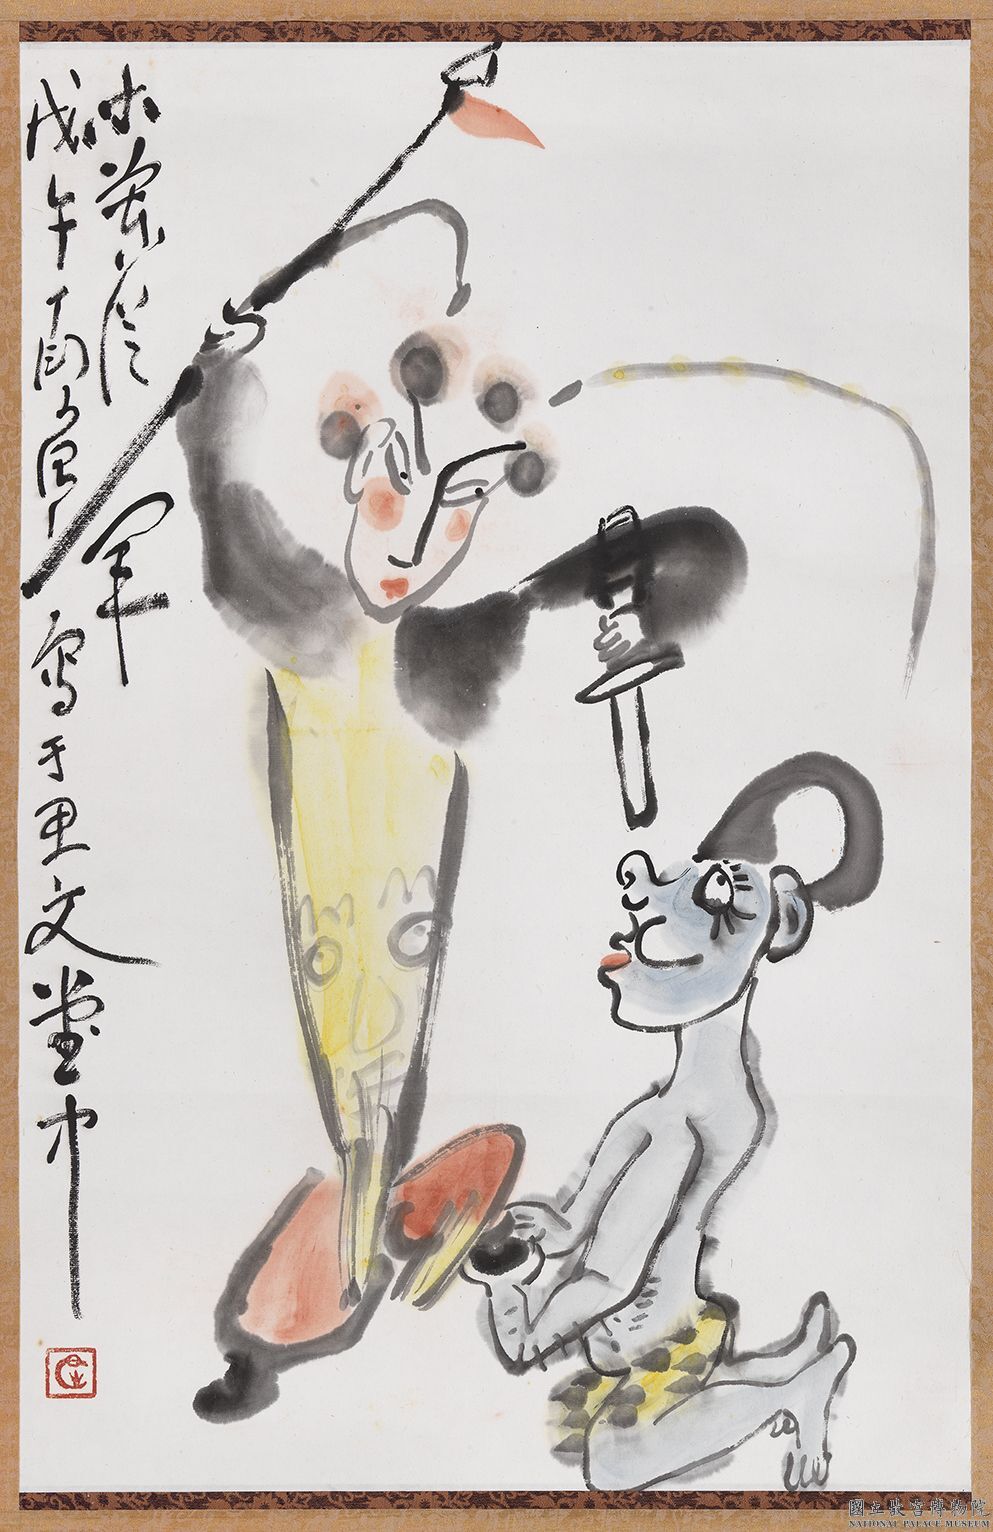 木蘭從軍
戊午丁衍庸寫于文堂中
國立故宮博物院
NATIONAL PALACE MUSEUM